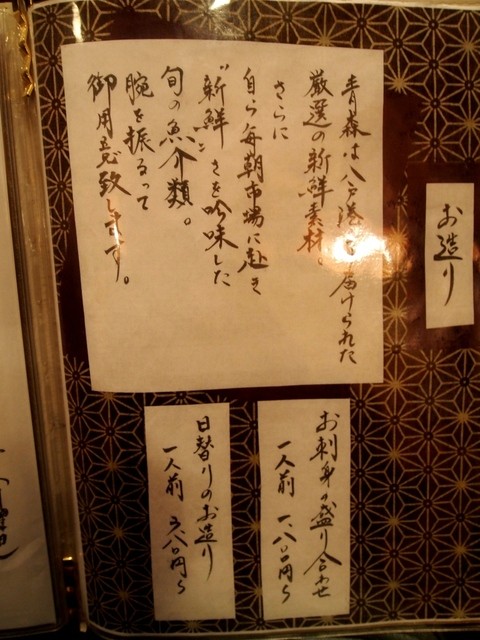 お造り
青森は八戸港より届けられた
厳選の新鮮素材。
さらに
自ら毎朝市場に赴き
"新鮮"さを吟味した
旬の魚介類。
腕を振るって
御用意致します。
お刺身の盛り合わせ
一人前 一、八〇円ら
日替りのお造り
一人前 五八〇円ら